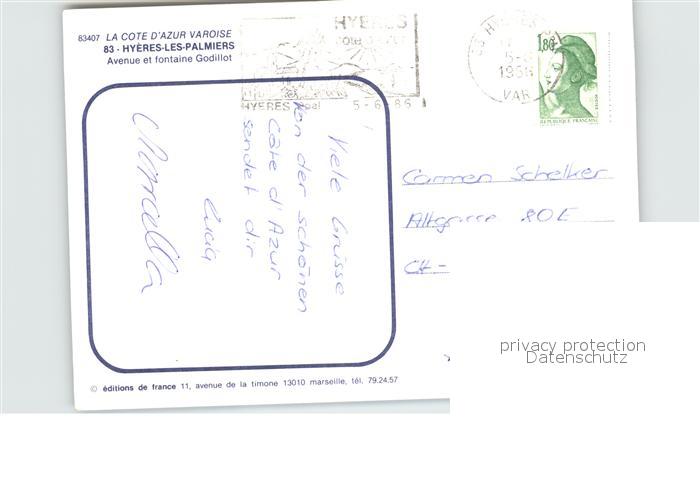 83407 LA COTE D'AZUR VAROISE
83 - HYÈRES-LES-PALMIERS
Avenue et fontaine Godillot
HYERES
HYERES 5-6-86
VAR
1,80
REPUBLIQUE FRANCAISE
Viele Grüsse
von der schönen
Côte d'Azur
sendet dir
Lucia
Marcella
Carmen Schelker
Altgasse 80E
CH-
© éditions de france 11, avenue de la timone 13010 marseille, tél. 79.24.57
privacy protection
Datenschutz